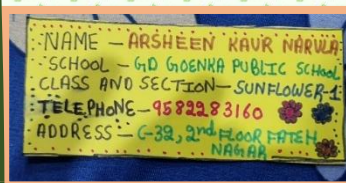 NAME - ARSHEEN KAUR NARWLA
SCHOOL - GD GOENKA PUBLIC SCHOOL
CLASS AND SECTION - SUNFLOWER-1
TELEPHONE - 9582283160
ADDRESS - C-32, 2nd FLOOR FATEH
NAGAR